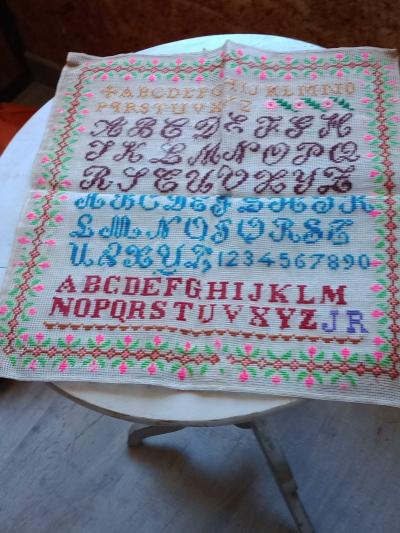 ABCDEFGHIJKLMNO
PQRSTUVXYZ
ABCDEFGH
IKLMNOPQ
RSTUVXYZ
ABCDEFGHIK
LMNOPQRST
UVXYZ1234567890
ABCDEFGHIJKLM
NOPQRSTUVXYZJR